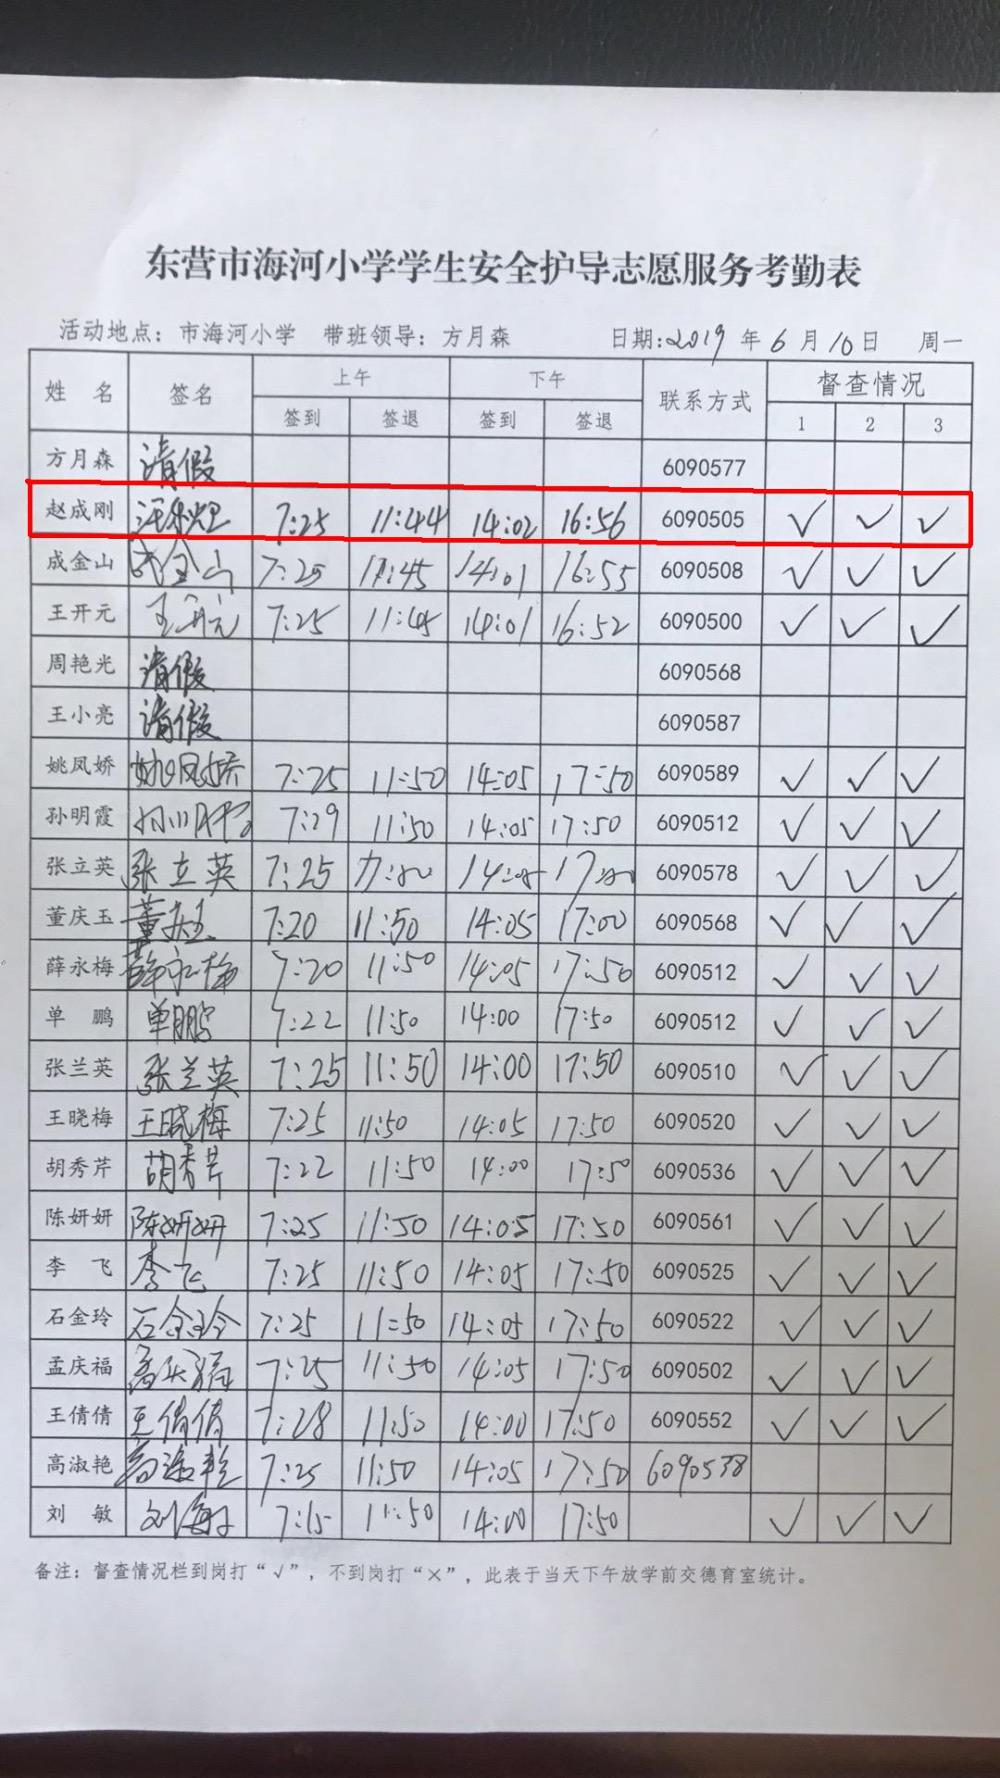 东营市海河小学学生安全护导志愿服务考勤表
活动地点：市海河小学 带班领导：方月森 日期：2019 年 6 月 10 日 周一
姓 名 签名 上午 下午 联系方式 督查情况
签到 签退 签到 签退 1 2 3
方月森 请假 6090577
赵成刚 7:25 11:44 14:02 16:56 6090505 ✓ ✓ ✓
成金山 成金山 7:25 11:45 14:01 16:55 6090508 ✓ ✓ ✓
王开元 王开元 7:25 11:45 14:01 16:52 6090500 ✓ ✓ ✓
周艳光 请假 6090568
王小亮 请假 6090587
姚凤娇 姚凤娇 7:25 11:50 14:05 17:50 6090589 ✓ ✓ ✓
孙明霞 孙明霞 7:29 11:50 14:05 17:50 6090512 ✓ ✓ ✓
张立英 张立英 7:25 14:05 6090578 ✓ ✓ ✓
董庆玉 董庆玉 7:20 11:50 14:05 17:00 6090568 ✓ ✓ ✓
薛永梅 薛永梅 7:20 11:50 14:05 17:50 6090512 ✓ ✓ ✓
单 鹏 单鹏 7:22 11:50 14:00 17:50 6090512 ✓ ✓ ✓
张兰英 张兰英 7:25 11:50 14:00 17:50 6090510 ✓ ✓ ✓
王晓梅 王晓梅 7:25 11:50 14:05 17:50 6090520 ✓ ✓ ✓
胡秀芹 胡秀芹 7:22 11:50 14:00 17:50 6090536 ✓ ✓ ✓
陈妍妍 陈妍妍 7:25 11:50 14:05 17:50 6090561 ✓ ✓ ✓
李 飞 李飞 7:25 11:50 14:05 17:50 6090525 ✓ ✓ ✓
石金玲 石金玲 7:25 11:50 14:05 17:50 6090522 ✓ ✓ ✓
孟庆福 孟庆福 7:25 11:50 14:05 17:50 6090502 ✓ ✓ ✓
王倩倩 王倩倩 7:28 11:50 14:00 17:50 6090552 ✓ ✓ ✓
高淑艳 高淑艳 7:25 11:50 14:05 17:50 6090538
刘 敏 刘敏 7:15 11:50 14:00 17:50 ✓ ✓ ✓
备注：督查情况栏到岗打“√”，不到岗打“×”，此表于当天下午放学前交德育室统计。